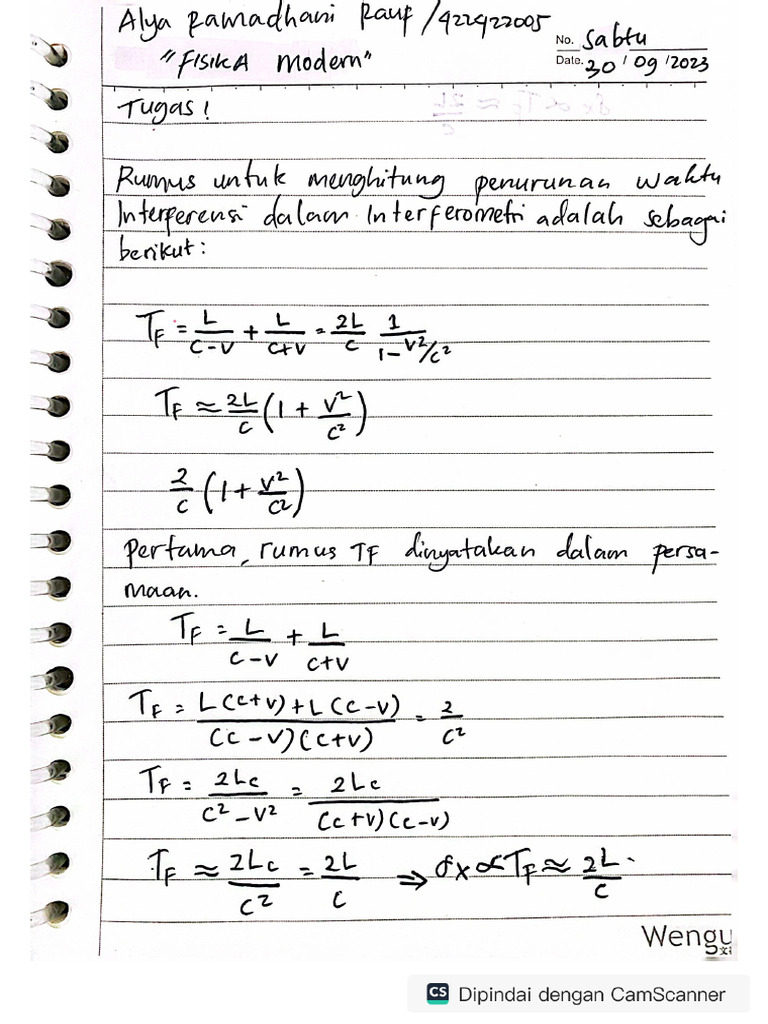 Alya Ramadhani Rauf /422422005
No. Sabtu
"FISIKA Modern"
Date. 30 / 09 / 2023
Tugas!
Rumus untuk menghitung penurunan waktu
Interferensi dalam Interferometri adalah sebagai
berikut:
T_F = L/(C-V) + L/(C+V) = 2L/C 1/(1-V²/C²)
T_F ≈ 2L/C (1 + V²/C²)
2/C (1 + V²/C²)
Pertama, rumus TF dinyatakan dalam persa-
maan.
T_F = L/(C-V) + L/(C+V)
T_F = (L(C+V) + L(C-V))/((C-V)(C+V)) = 2/C²
T_F = 2LC/(C²-V²) = 2LC/((C+V)(C-V))
T_F ≈ 2LC/C² = 2L/C ⇒ σx ∝ T_F ≈ 2L/C.
Wengu
CS Dipindai dengan CamScanner